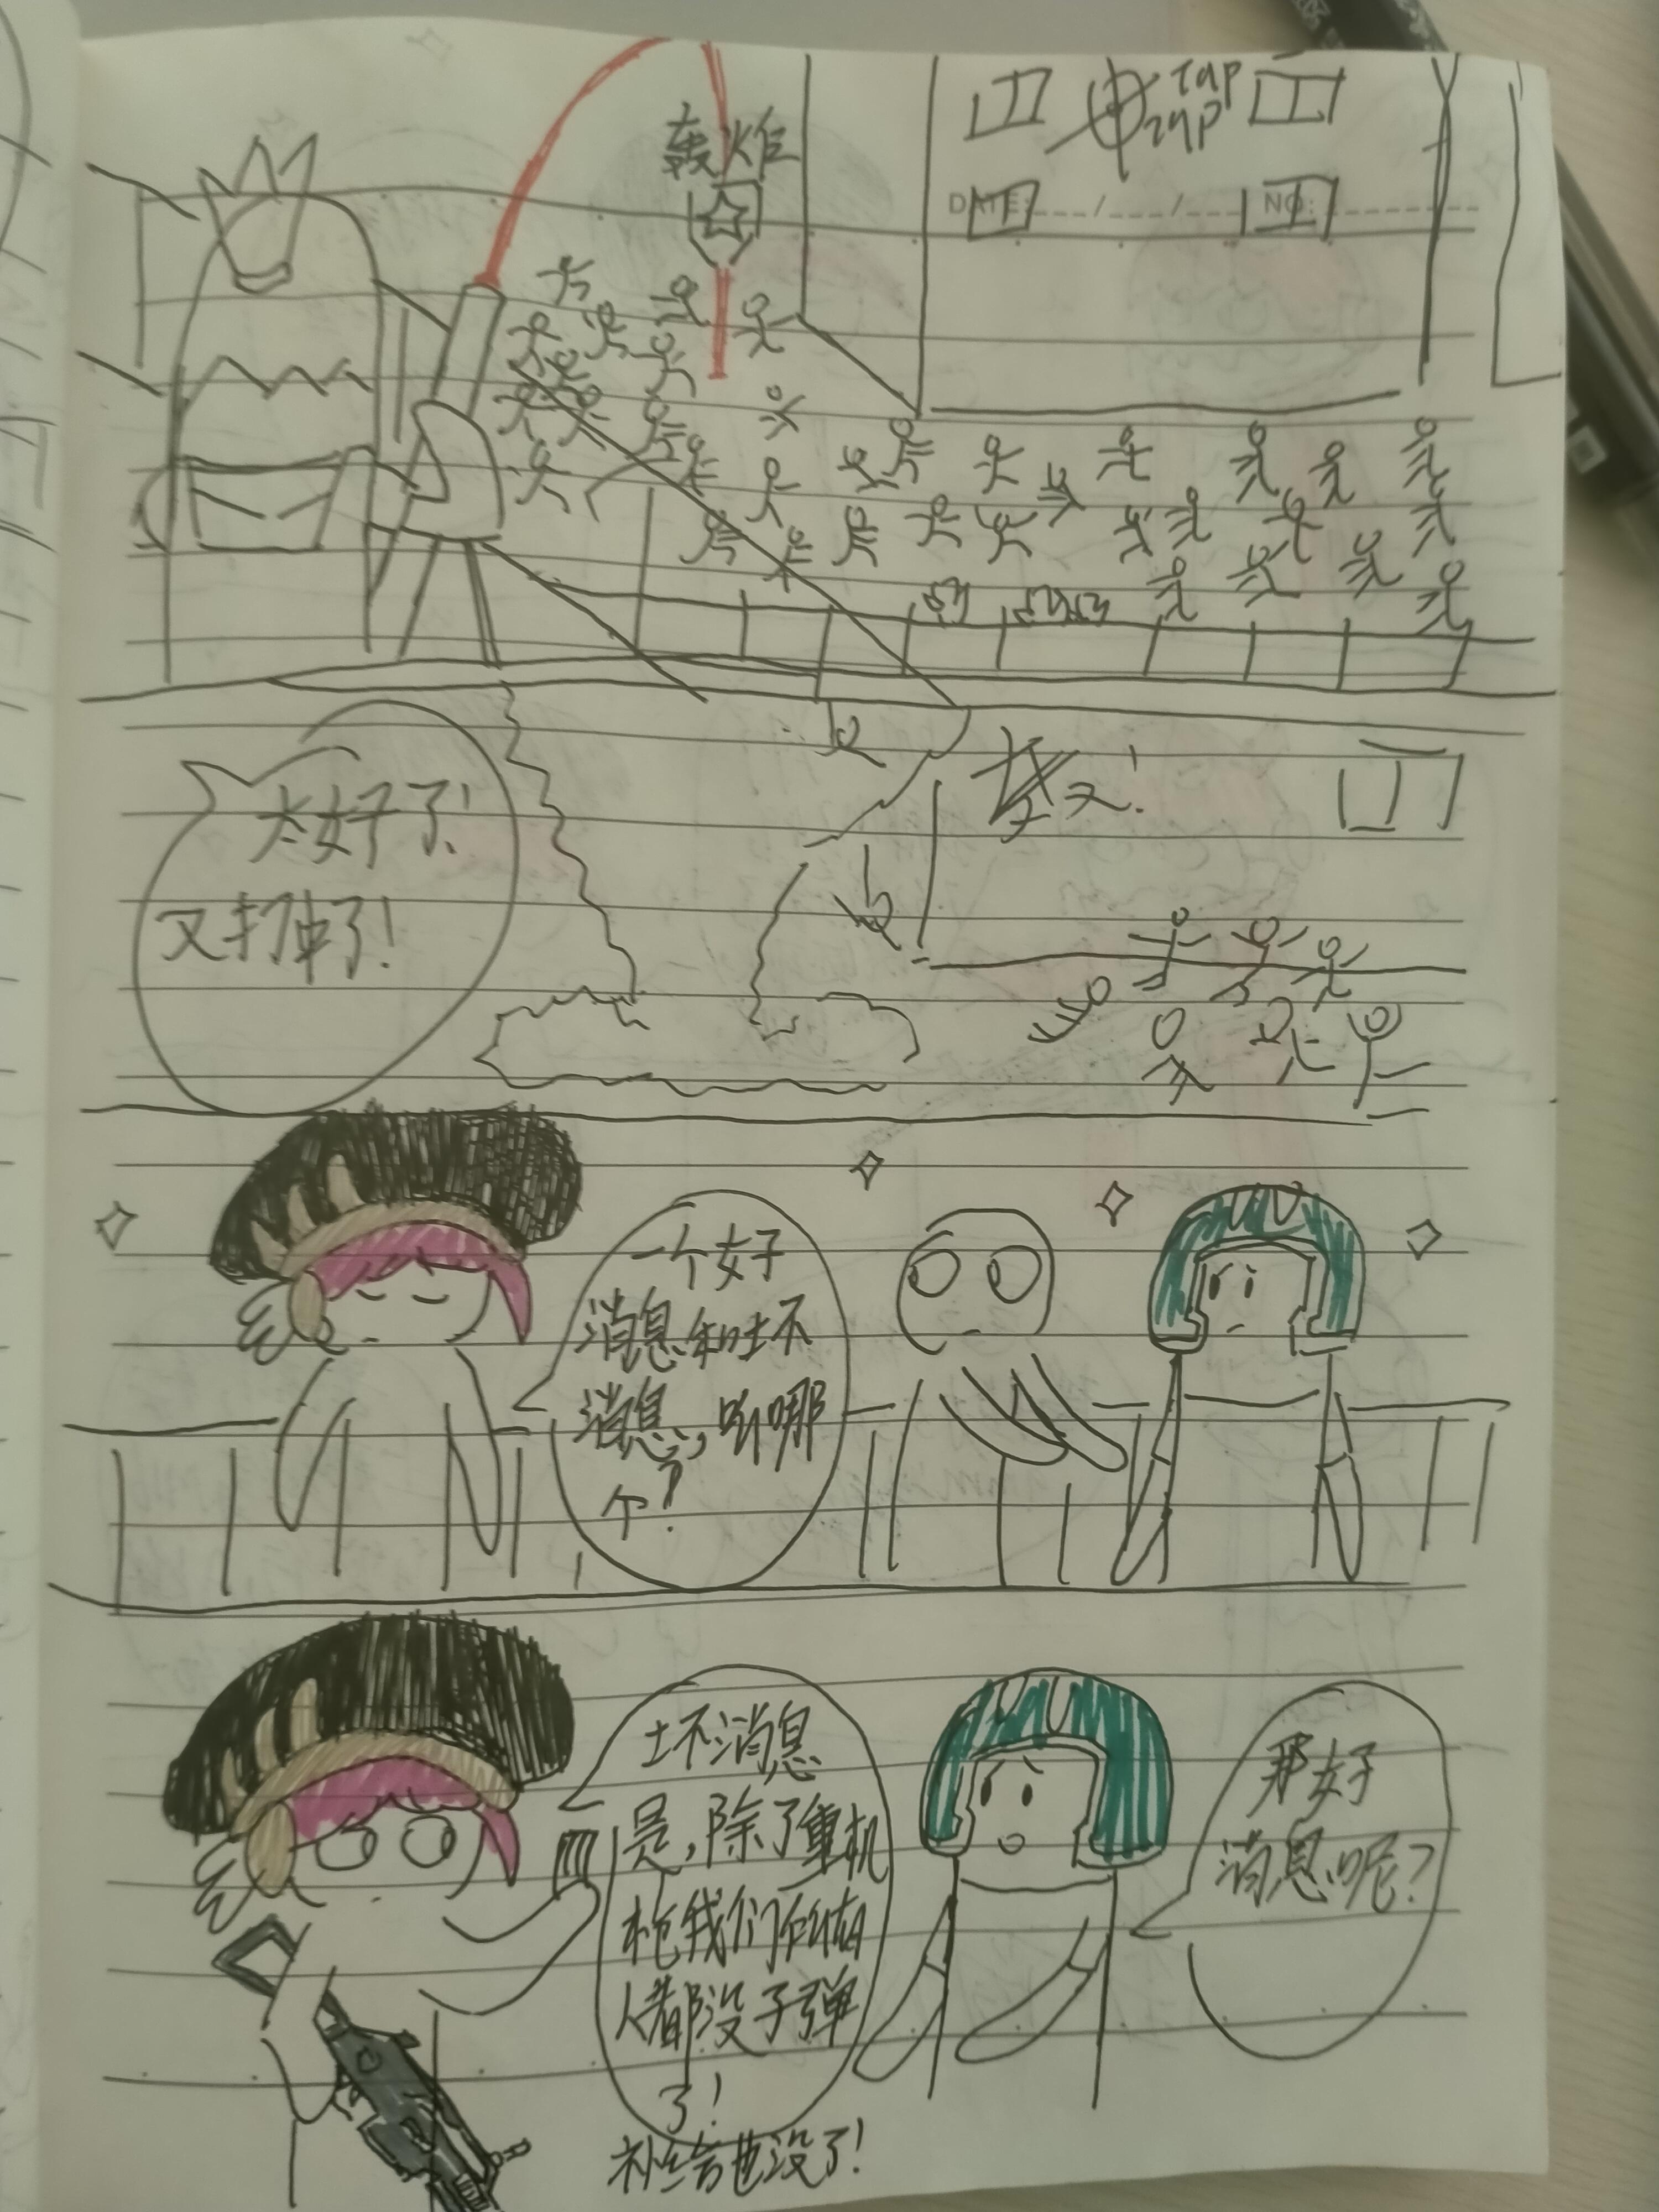 轰炸
Tap
Tap
DATE: / / NO:
太好了!
又打冲了!
一个好
消息和坏
消息,听哪
个?
坏消息
是,除了重机
枪我们所有
人都没子弹
了!
补给也没了!
那好
消息呢?